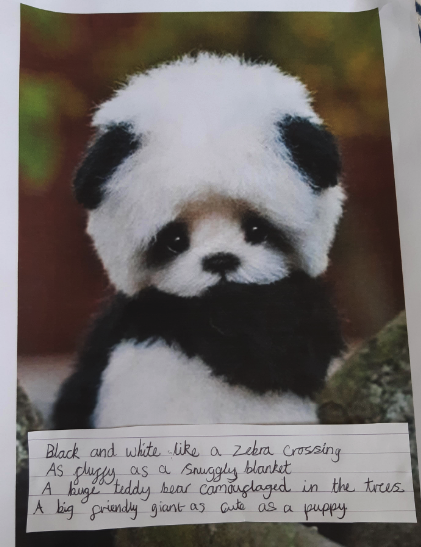 Black and white like a zebra crossing
As fluffy as a snuggly blanket
A huge teddy bear camouflaged in the trees
A big friendly giant as cute as a puppy